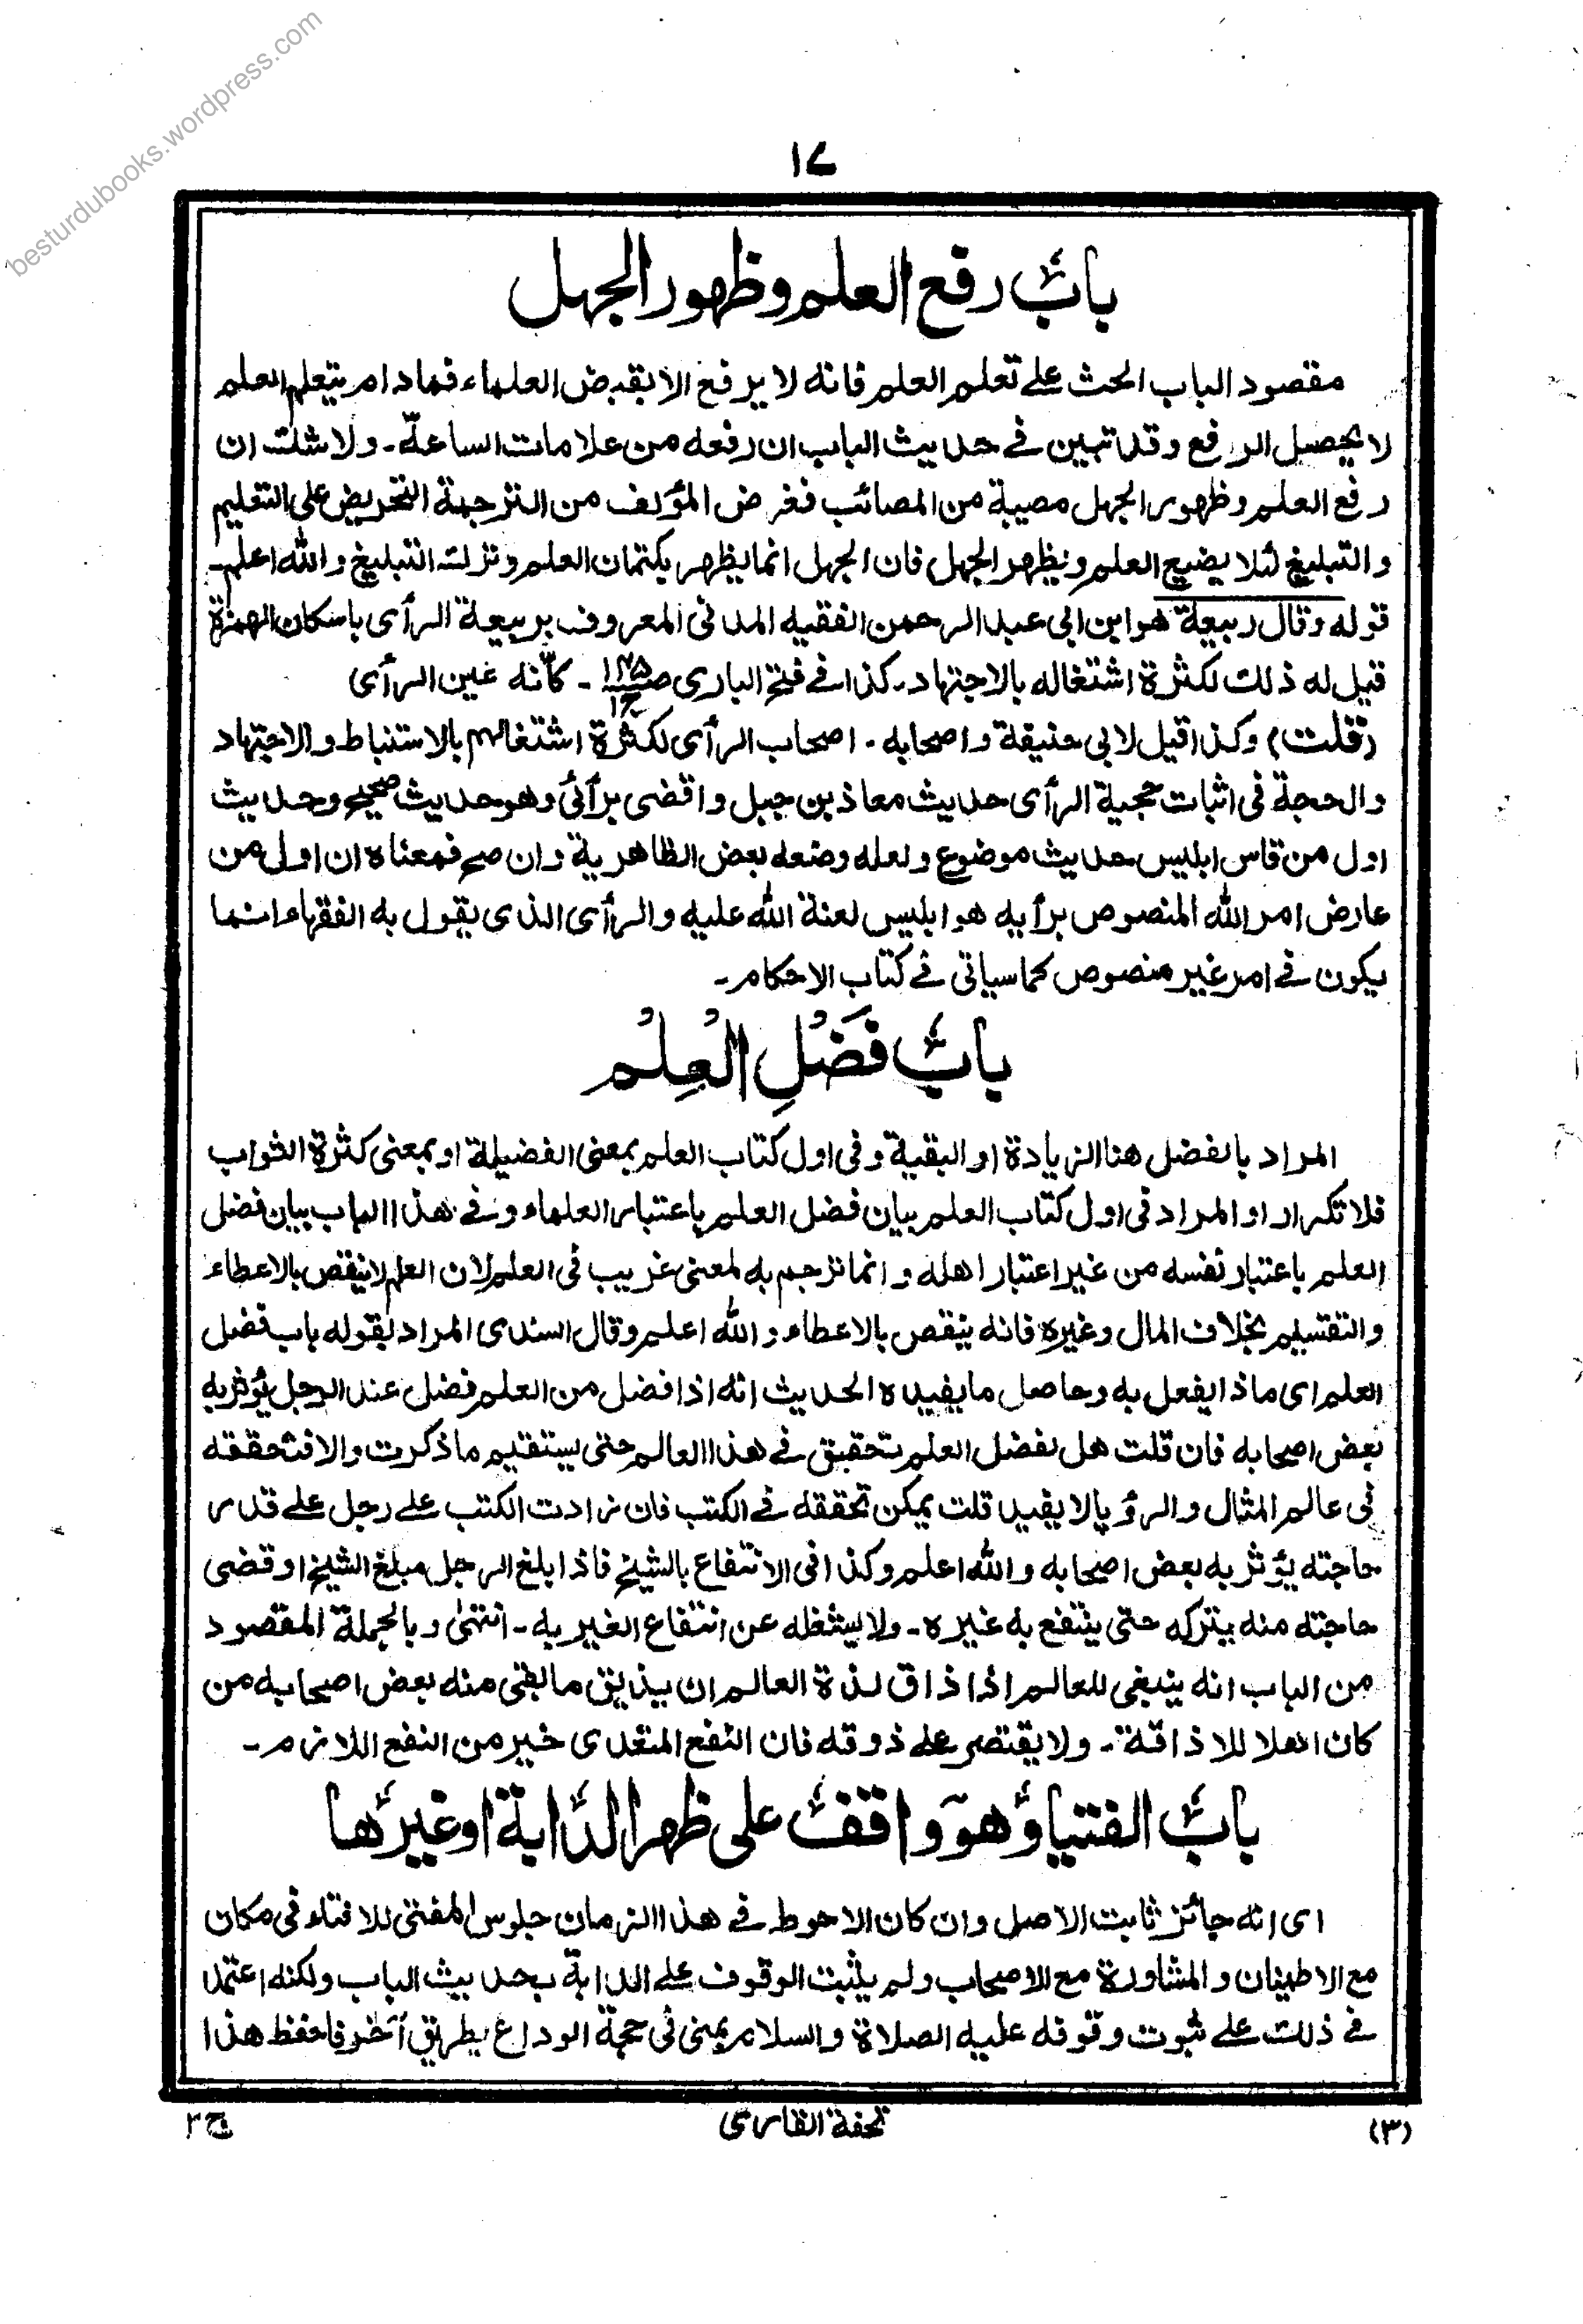 besturdubooks.wordpress.com
١٧
باب رفع العلم وظهور الجهل
مقصود الباب الحث علے تعلم العلم فانه لا يرفع الا بقبض العلماء فمادام يتعلم العلم
لا يحصل الرفع وقد تبين فے حديث الباب ان رفعه من علامات الساعة۔ ولا شك ان
رفع العلم وظهور الجهل مصيبة من المصائب فغرض المؤلف من الترجمة التحريض على التعليم
والتبليغ لئلا يضيع العلم ويظهر الجهل فان الجهل انما يظهر بكتمان العلم وترك التبليغ والله اعلم۔
قوله وقال ربيعة هو ابن ابى عبد الرحمن الفقيه المدنى المعروف بربيعة الرأى باسكان الهمزة
قيل له ذلك لكثرة اشتغاله بالاجتهاد۔ كذا فے فتح البارى ص ج١ ۔ كأنه عين الرأى
(قلت) وكذا قيل لابى حنيفة واصحابه۔ اصحاب الرأى لكثرة اشتغالهم بالاستنباط والاجتهاد
والحجة فى اثبات حجية الرأى حديث معاذ بن جبل واقضى برأئى وهو حديث صحيح وحديث
اول من قاس ابليس حديث موضوع ولعله وضعه بعض الظاهرية وان صح فمعناه ان اول من
عارض امر الله المنصوص برأيه هو ابليس لعنة الله عليه والرأى الذى يقول به الفقهاء انما
يكون فے امر غير منصوص كما سياتى فے كتاب الاحكام۔
باب فَضْلِ الْعِلْم
المراد بالفضل هنا الزيادة او البقية وفى اول كتاب العلم بمعنى الفضيلة او بمعنى كثرة الثواب
فلا تكرار او المراد فى اول كتاب العلم بيان فضل العلم باعتبار العلماء وفے هذا الباب بيان فضل
العلم باعتبار نفسه من غير اعتبار اهله وانما ترجم به لمعنى غريب فى العلم لان العلم لا ينقص بالاعطاء
والتقسيم بخلاف المال وغيره فانه ينقص بالاعطاء والله اعلم وقال السندى المراد بقوله باب فضل
العلم اى ماذا يفعل به وحاصل ما يفيده الحديث انه اذا فضل من العلم فضل عند الرجل يؤثر به
بعض اصحابه فان قلت هل لفضل العلم تحقيق فے هذا العالم حتى يستقيم ما ذكرت والا فتحققه
فى عالم المثال والرؤيا لا يفيد قلت يمكن تحققه فے الكتب فان زادت الكتب علے رجل علے قدر
حاجته يؤثر به بعض اصحابه والله اعلم وكذا فى الانتفاع بالشيخ فاذا بلغ الرجل مبلغ الشيخ او قضى
حاجته منه يتركه حتى ينتفع به غيره۔ ولا يشغله عن انتفاع الغير به۔ انتهى وبالجملة المقصود
من الباب انه ينبغى للعالم اذا ذاق لذة العالم ان يذيق ما بقى منه بعض اصحابه من
كان اهلا للاذاقة۔ ولا يقتصر علے ذوقه فان النفع المتعدى خير من النفع اللازم۔
باب الفتيا وهو واقف على ظهر الدابة او غيرها
اى انه جائز ثابت الاصل وان كان الاحوط فے هذا الزمان جلوس المفتى للافتاء فى مكان
مع الاطمينان والمشاورة مع للاصحاب ولم يثبت الوقوف علے الدابة بحديث الباب ولكنه اعتمد
فے ذلك علے ثبوت وقوفه عليه الصلاة والسلام بمنى فى حجة الوداع بطريق آخر فاحفظ هذا
(٣)
تحفة القارى
ج٢